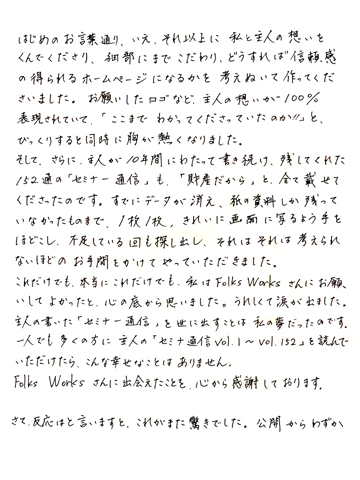 はじめのお言葉通り、いえ、それ以上に 私と主人の想いを
くんでくださり、細部にまで こだわり、どうすれば信頼感
の得られるホームページになるかを 考えぬいて作ってくだ
さいました。 お願いしたロゴなど、主人の想いが100%
表現されていて、「ここまで わかってくださっていたのか!!」と、
びっくりすると同時に胸が熱くなりました。
そして、さらに、主人が10年間にわたって書き続け、残してくれた
152通の「セミナー通信」も、「財産だから」と、全て載せて
くださったのです。 すでにデータが消え、紙の資料しか残って
いなかったものまで、1枚1枚、きれいに画面に写るよう手を
ほどこし、不足している回も探し出し、それはそれは考えられ
ないほどのお手間をかけてやっていただきました。
これだけでも、本当にこれだけでも、私はFolks Worksさんにお願
いしてよかったと、心の底から思いました。うれしくて涙が出ました。
主人の書いた「セミナー通信」を世に出すことは 私の夢だったのです。
一人でも多くの方に 主人の「セミナ通信vol.1~vol.152」を読んで
いただけたら、こんな幸せなことはありません。
Folks Worksさんに出会えたことを、心から感謝しております。
さて、反応はと言いますと、これがまた驚きでした。公開からわずか